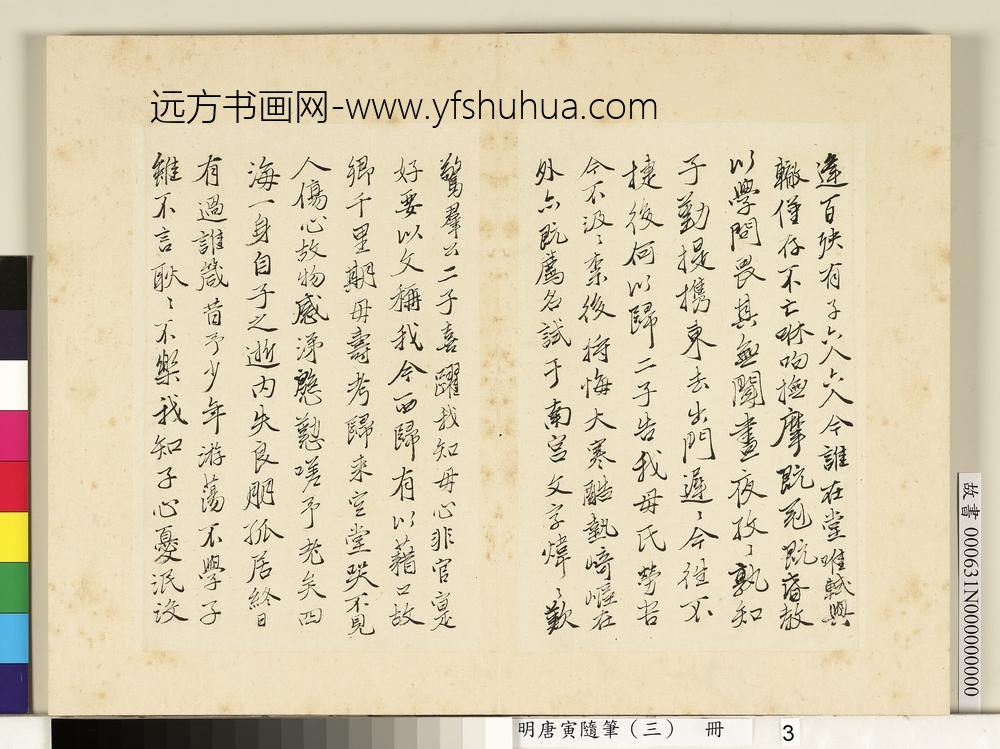 远方书画网-www.yfshuhua.com
逢百殃有子六人六人今誰在堂唯軾與
轍僅存不亡咻呴撫摩既冠既昏教
以學問畏其無聞晝夜孜〻孰知
子勤提攜東去出門遲〻今往不
捷後何以歸二子告我母氏勞苦
今不汲〻柰後將悔大寒酷熱崎嶇在
外亦既薦名試于南宮文字煒〻歎
驚羣公二子喜躍我知母心非官寔
好要以文稱我今西歸有以藉口故
鄉千里期母壽考歸來空堂哭不見
人傷心故物感涕慇懃嗟予老矣四
海一身自子之逝內失良朋孤居終日
有過誰箴昔予少年游蕩不學子
雖不言耿〻不樂我知子心憂泯没
故書 000631N000000000
明唐寅隨筆（三） 冊
3